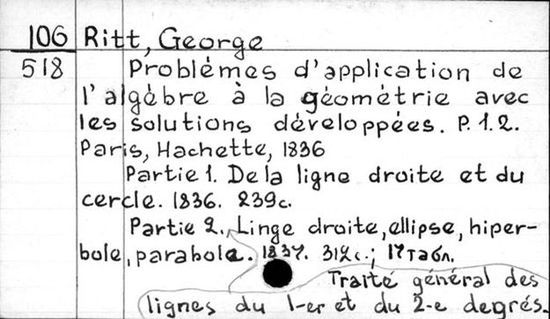 106 Ritt, George
518 Problèmes d'application de
l'algèbre à la géométrie avec
les solutions développées. P. 1. 2.
Paris, Hachette, 1836
Partie 1. De la ligne droite et du
cercle. 1836. 239с.
Partie 2., Linge droite, ellipse, hiper-
bole, parabole. 1837. 312с.; 17 табл.
Traité général des
lignes du 1-er et du 2-e degrés.